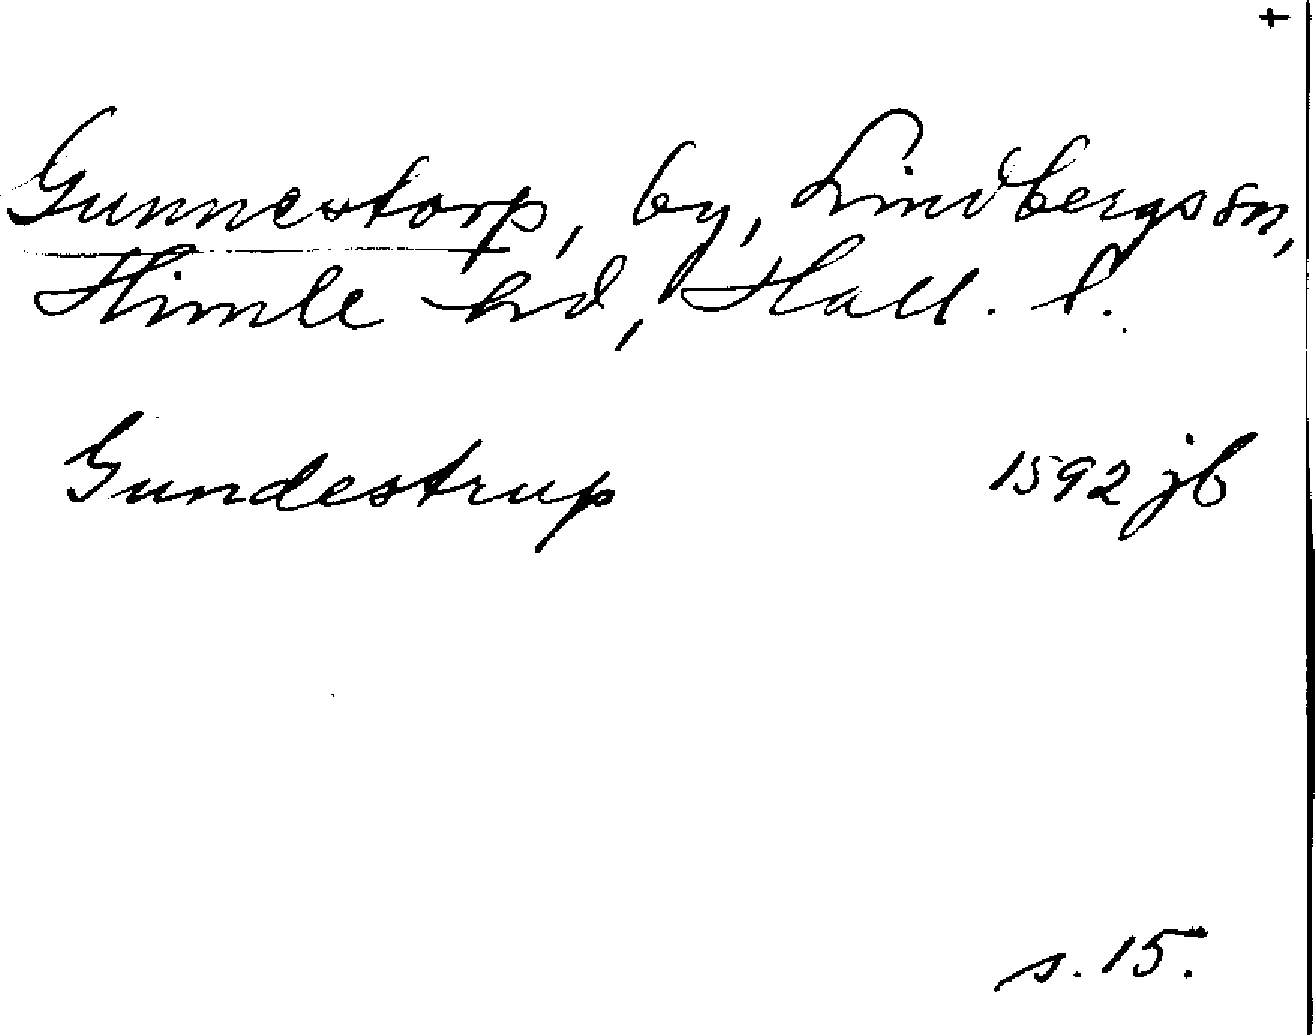 +
Gunnestorp, by, Lindbergs sn,
Himle hd, Hall. l.
Gundestrup 1592 jb
s. 15.